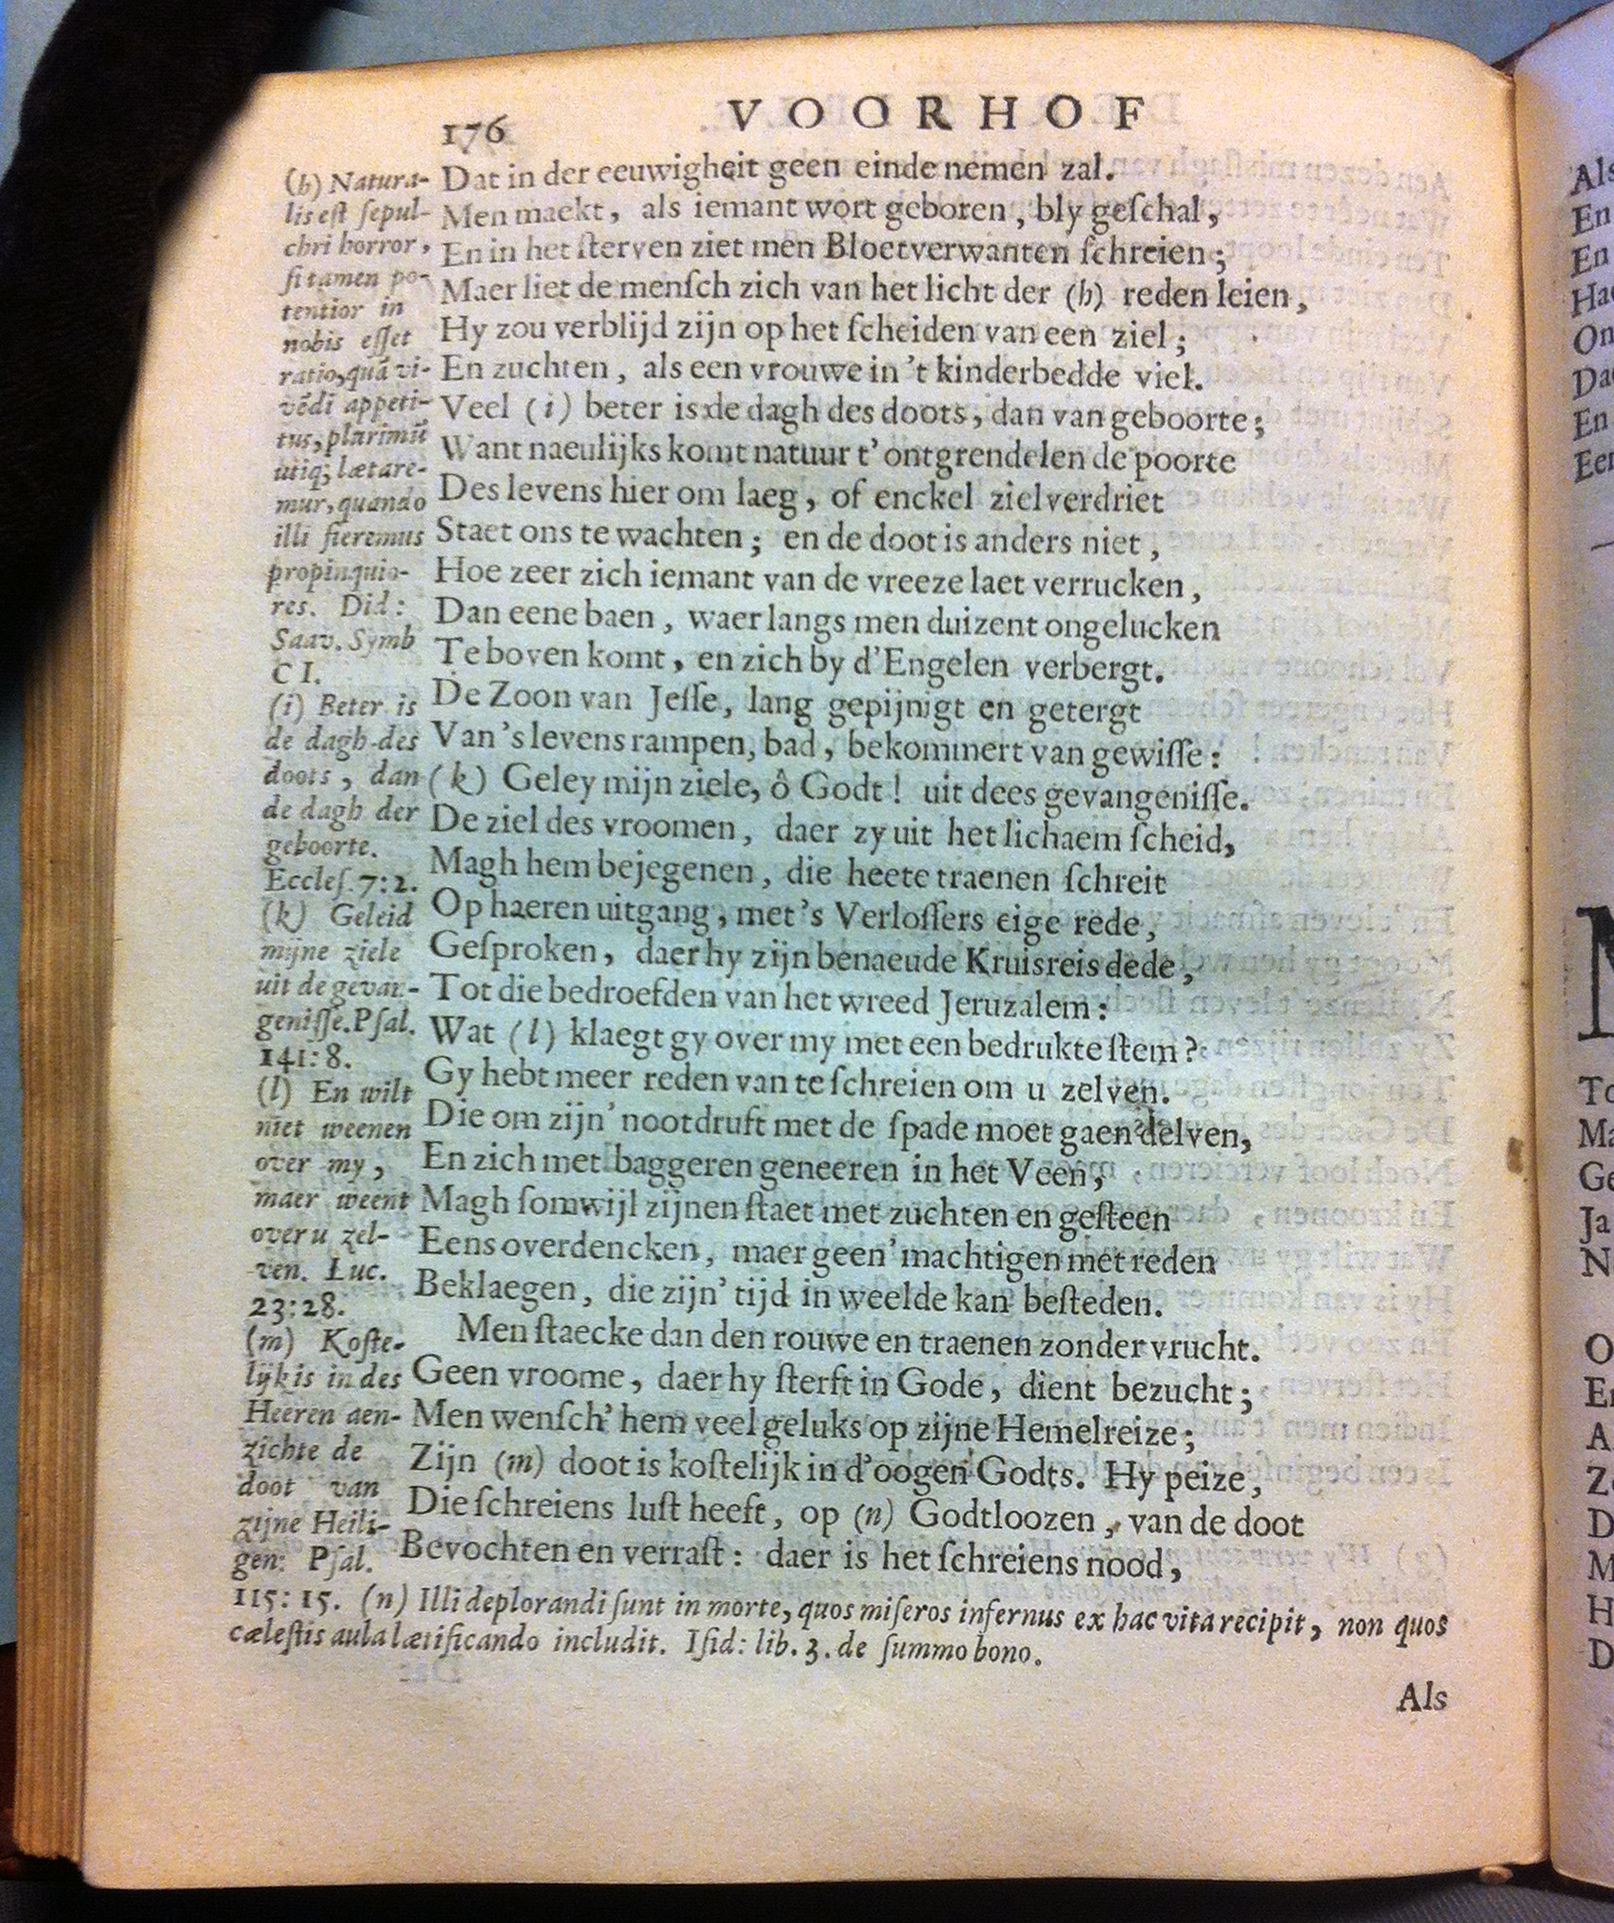 176 VOORHOF
Dat in der eeuwigheit geen einde nemen zal.
Men maekt, als iemant wort geboren, bly geſchal,
En in het ſterven ziet men Bloetverwanten ſchreien;
Maer liet de menſch zich van het licht der (h) reden leien,
Hy zou verblijd zijn op het ſcheiden van een ziel;
En zuchten, als een vrouwe in 't kinderbedde viel.
Veel (i) beter is de dagh des doots, dan van geboorte;
Want naeulijks komt natuur t' ontgrendelen de poorte
Des levens hier om laeg, of enckel zielverdriet
Staet ons te wachten; en de doot is anders niet,
Hoe zeer zich iemant van de vreeze laet verrucken,
Dan eene baen, waer langs men duizent ongelucken
Te boven komt, en zich by d'Engelen verbergt.
De Zoon van Jeſſe, lang gepijnigt en getergt
Van 's levens rampen, bad, bekommert van gewiſſe:
(k) Geley mijn ziele, ô Godt! uit dees gevangeniſſe.
De ziel des vroomen, daer zy uit het lichaem ſcheid,
Magh hem bejegenen, die heete traenen ſchreit
Op haeren uitgang, met 's Verloſſers eige rede,
Geſproken, daer hy zijn benaeude Kruisreis dede,
Tot die bedroefden van het wreed Jeruzalem:
Wat (l) klaegt gy over my met een bedrukte ſtem?
Gy hebt meer reden van te ſchreien om u zelven.
Die om zijn' nootdruft met de ſpade moet gaen delven,
En zich met baggeren geneeren in het Veen,
Magh ſomwijl zijnen ſtaet met zuchten en geſteen
Eens overdencken, maer geen' machtigen met reden
Beklaegen, die zijn' tijd in weelde kan beſteden.
Men ſtaecke dan den rouwe en traenen zonder vrucht.
Geen vroome, daer hy ſterft in Gode, dient bezucht;
Men wenſch' hem veel geluks op zijne Hemelreize;
Zijn (m) doot is koſtelijk in d'oogen Godts. Hy peize,
Die ſchreiens luſt heeft, op (n) Godtloozen, van de doot
Bevochten en verraſt: daer is het ſchreiens nood,
(h) Natura-
lis eſt ſepul-
chri horror,
ſi tamen po-
tentior in
nobis eſſet
ratio, quã vi-
vẽdi appeti-
tus, plurimũ
utiq; lætare-
mur, quando
illi fieremus
propinquio-
res. Did:
Saav. Symb
CI.
(i) Beter is
de dagh des
doots, dan
de dagh der
geboorte.
Eccleſ. 7:2.
(k) Geleid
mijne ziele
uit de gevan-
geniſſe. Pſal.
141:8.
(l) En wilt
niet weenen
over my,
maer weent
over u zel-
ven. Luc.
23:28.
(m) Koſte-
lijk is in des
Heeren aen-
zichte de
doot van
zijne Heili-
gen: Pſal.
115:15. (n) Illi deplorandi ſunt in morte, quos miſeros infernus ex hac vita recipit, non quos
cæleſtis aula lætificando includit. Iſid: lib. 3. de ſummo bono.
Als
Als
En
En
On
En
To
Ma
Ge
Ja
N
O
A
D
M
H
D